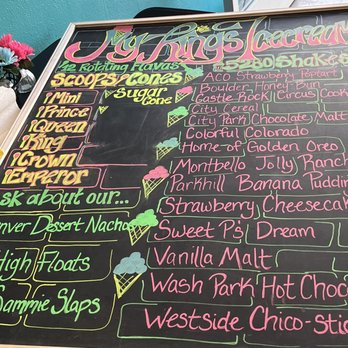 My King's Icecream
12 Rotating Flavas
SCOOPS & CONES
Sugar
Cone
1 Mini
1 Prince
1 Queen
1 King
1 Crown
1 Emperor
Ask about our...
Denver Dessert Nachos
High Floats
Sammie Slaps
5280 Shakes
ACO Strawberry Poptart
Boulder Honey-Bun
Castle Rock Circus Cook
City Cereal
City Park Chocolate Malt
Colorful Colorado
Home of Golden Oreo
Montbello Jolly Ranch
Parkhill Banana Puddin
Strawberry Cheesecak
Sweet P's Dream
Vanilla Malt
Wash Park Hot Choco
Westside Chico-Stic